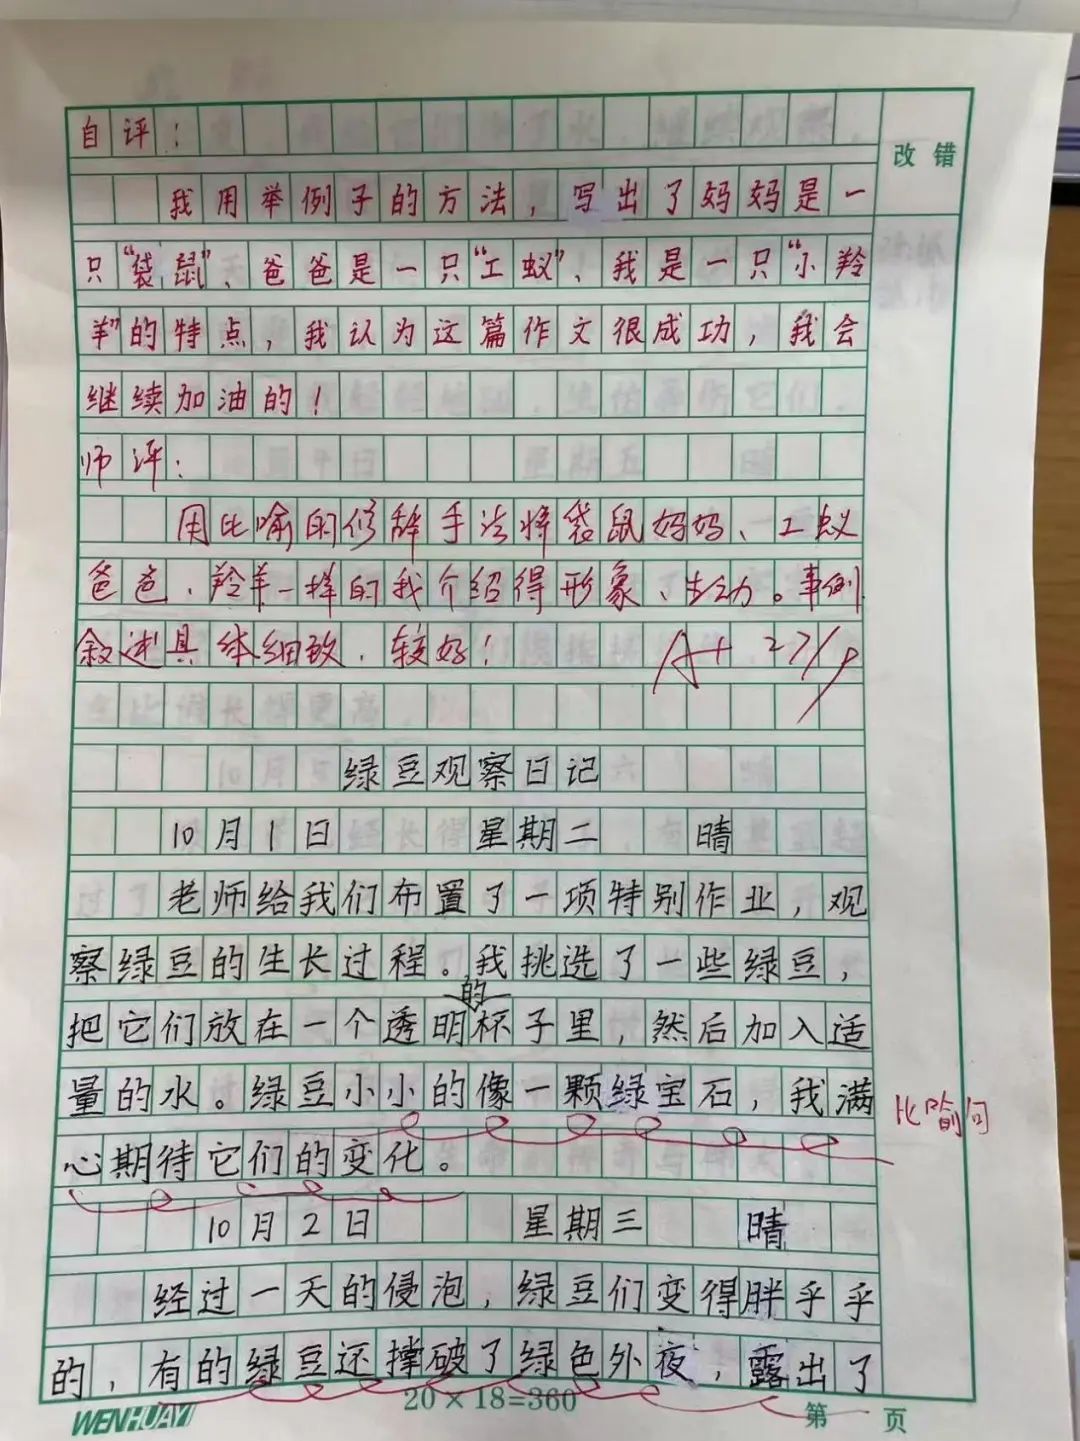 改错
自评：
我用举例子的方法，写出了妈妈是一
只“袋鼠”、爸爸是一只“工蚁”、我是一只“小羚
羊”的特点，我认为这篇作文很成功，我会
继续加油的！
师评：
用比喻的修辞手法将袋鼠妈妈、工蚁
爸爸、羚羊一样的我介绍得形象、生动。事例
叙述具体细致，较好！ A+ 27/9
绿豆观察日记
10月1日 星期二 晴
老师给我们布置了一项特别作业，观
察绿豆的生长过程。我挑选了一些绿豆，
把它们放在一个透明的杯子里，然后加入适
量的水。绿豆小小的像一颗绿宝石，我满
比喻句
心期待它们的变化。
10月2日 星期三 晴
经过一天的侵泡，绿豆们变得胖乎乎
的，有的绿豆还撑破了绿色外夜，露出了
WENHUAYI 20×18=360 第 页